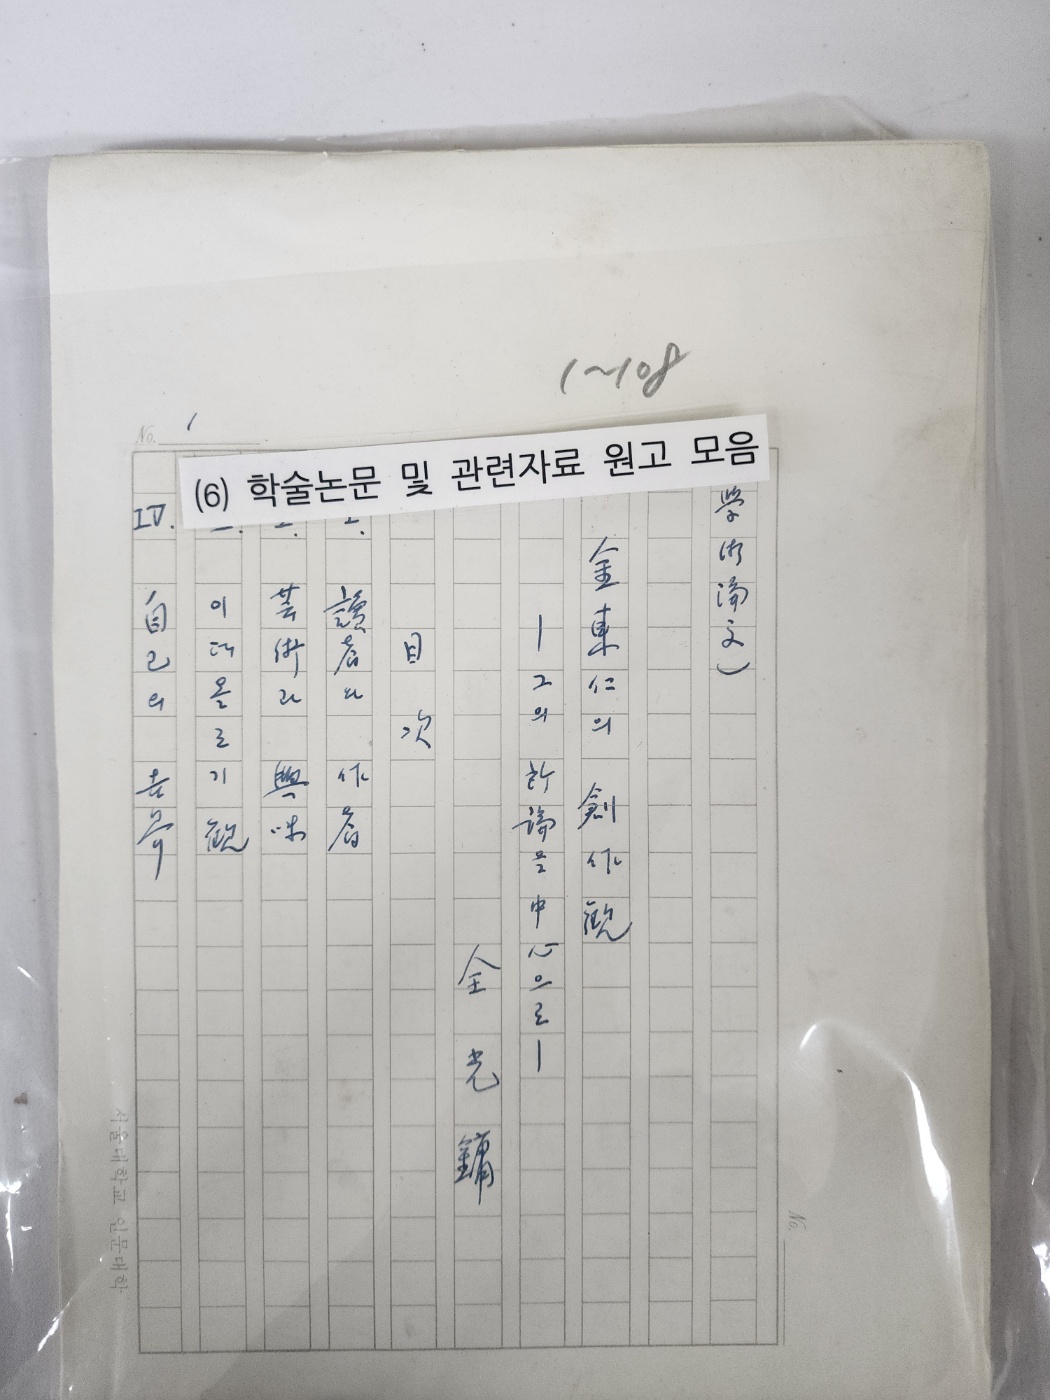 1~108
No. 1
(6) 학술논문 및 관련자료 원고 모음
學術論文)
金東仁의 創作觀
―그의 評論을 中心으로―
全光鏞
目次
讀者와 作者
芸術과 興味
이데올로기 觀
IV. 自己의 告白
No.
서울대학교 인문대학